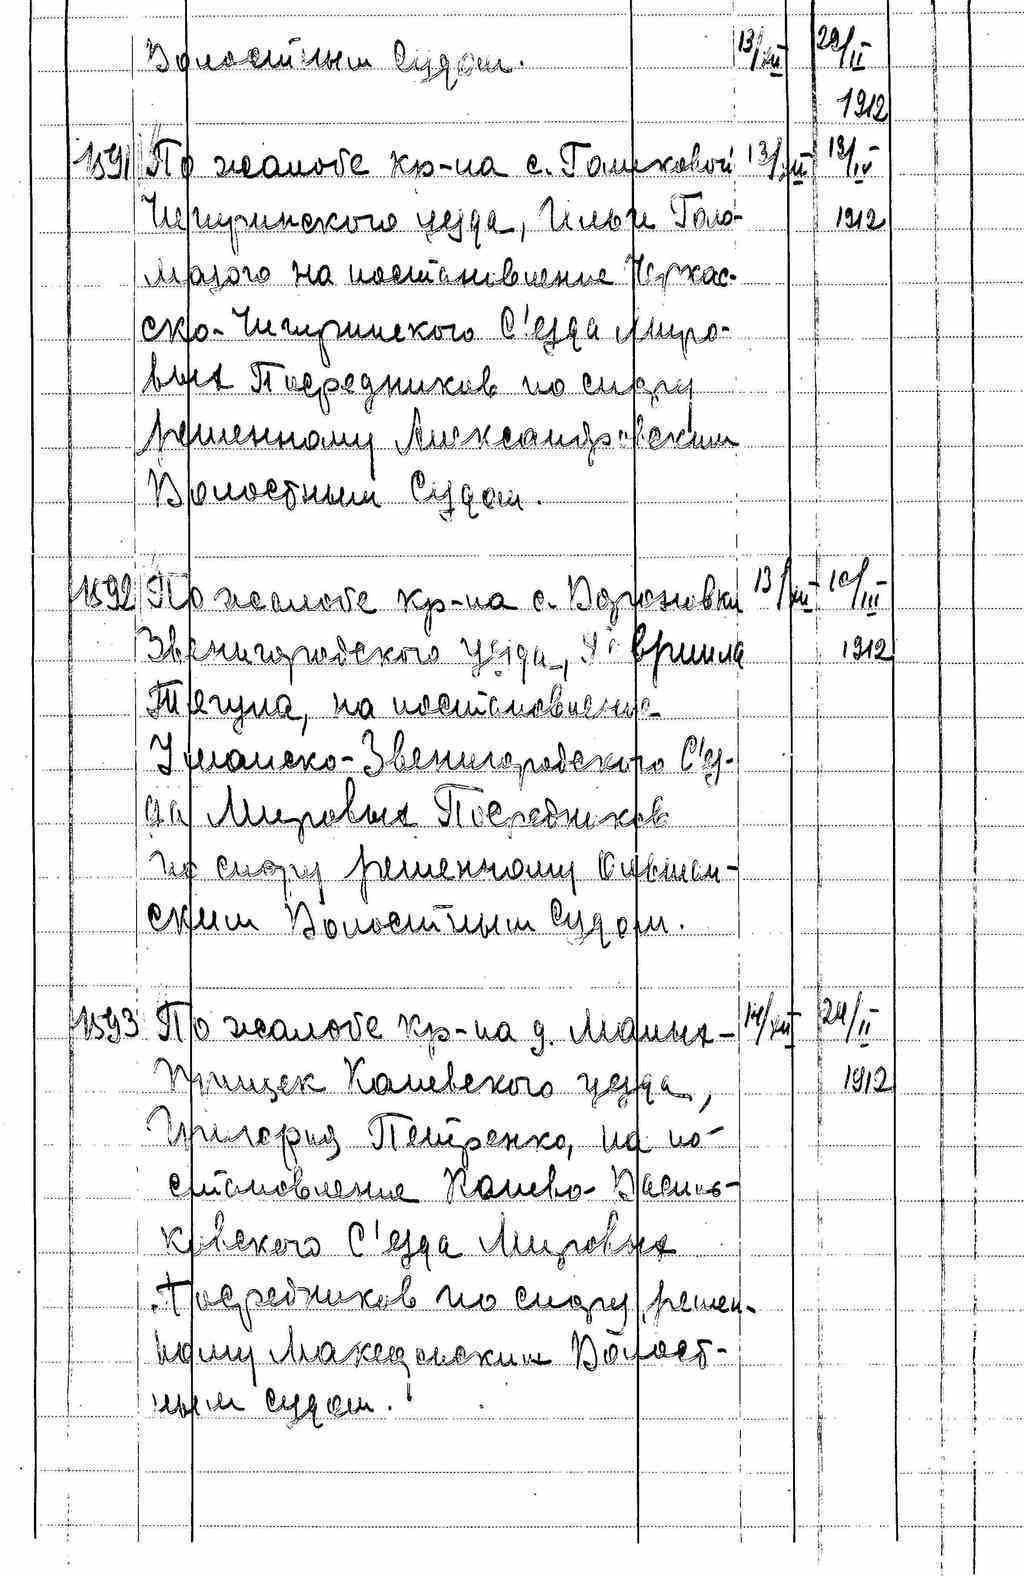 Волостным Судом. 13/XII 29/II
1912
1591 По жалобе кр-на с. Галиковой 13/XII 18/IV
Чигиринского уезда, Ильи Голо- 1912
мазого на постановление Черкас-
ско-Чигиринского С'езда Миро-
вых Посредников по спору
решенному Александровским
Волостным Судом.
1592 По жалобе кр-на с. Вороновки 13/XII 10/III
Звенигородского уезда, Гавриила 1912
Тягуна, на постановление
Уманско-Звенигородского С'ез-
да Мировых Посредников
по спору решенному Ольшан-
ским Волостным Судом.
1593 По жалобе кр-на д. Малых- 14/XII 24/II
Прицек Каневского уезда, 1912
Григория Петренко, на по-
становление Канево-Василь-
ковского С'езда Мировых
Посредников по спору, решен-
ному Македонским Волост-
ным судом.